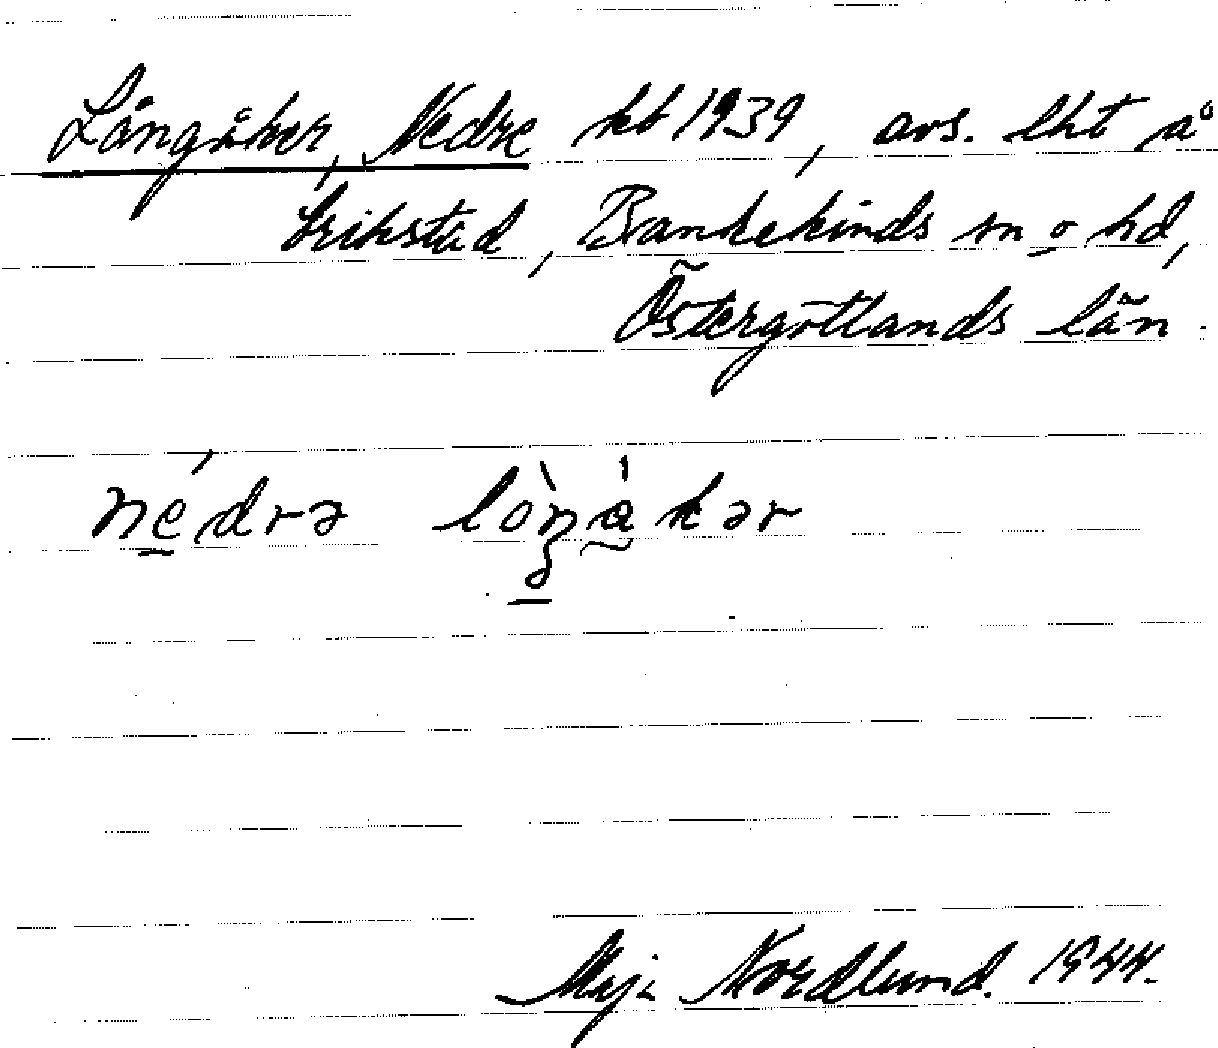 Långåker, Nedre kb 1939, avs. lht å
Erikstad, Bankekinds sn o hd,
Östergötlands län.
nédrə
Maja Nordlund. 1944.